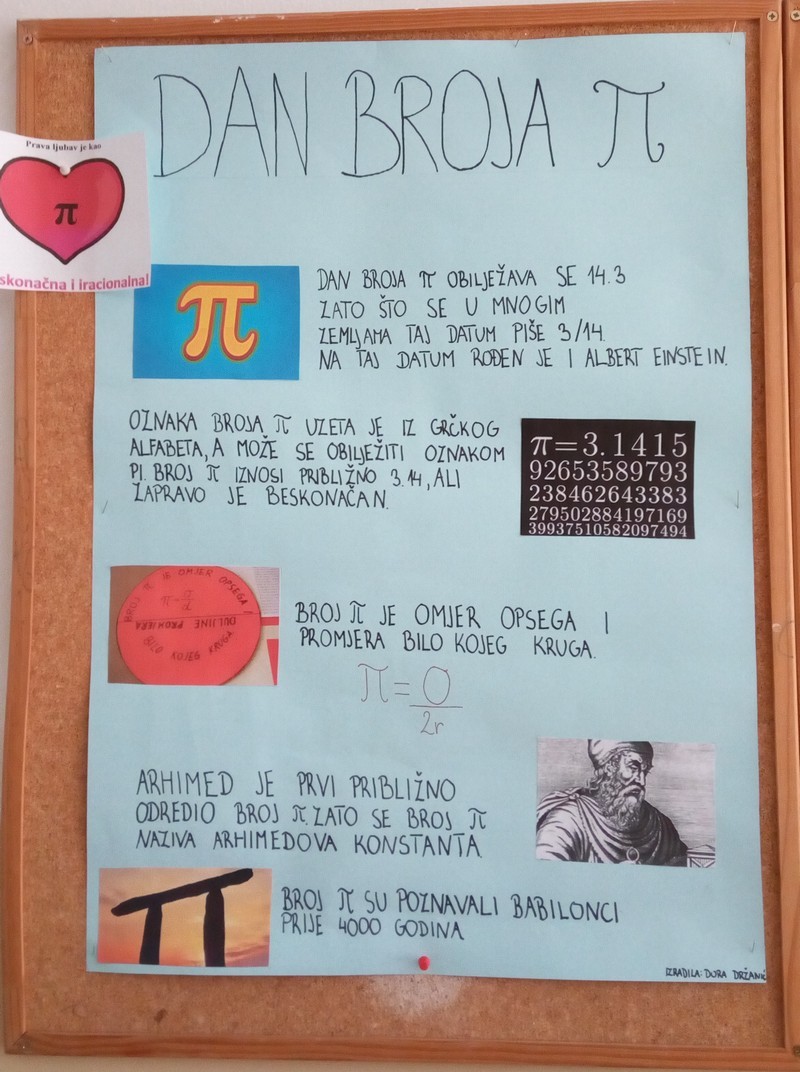 DAN BROJA π
Prava ljubav je kao
π
skonačna i iracionalna!
π
DAN BROJA π OBILJEŽAVA SE 14.3
ZATO ŠTO SE U MNOGIM
ZEMLJAMA TAJ DATUM PIŠE 3/14.
NA TAJ DATUM ROĐEN JE I ALBERT EINSTEIN.
OZNAKA BROJA π UZETA JE IZ GRČKOG
ALFABETA, A MOŽE SE OBILJEŽITI OZNAKOM
PI. BROJ π IZNOSI PRIBLIŽNO 3.14, ALI
ZAPRAVO JE BESKONAČAN.
π=3.1415
92653589793
238462643383
279502884197169
39937510582097494
BROJ π JE OMJER OPSEGA I
DULJINE PROMJERA
BILO KOJEG KRUGA
BROJ π JE OMJER OPSEGA I
PROMJERA BILO KOJEG KRUGA.
π=O
2r
ARHIMED JE PRVI PRIBLIŽNO
ODREDIO BROJ π. ZATO SE BROJ π
NAZIVA ARHIMEDOVA KONSTANTA.
π
BROJ π SU POZNAVALI BABILONCI
PRIJE 4000 GODINA
IZRADILA: DORA DRŽANIĆ